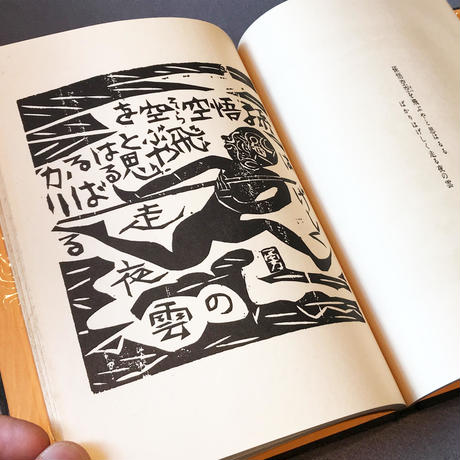 孫悟空空を
そら
飛ぶや
と思
はる
るば
かり
はげしく
走る
夜の
雲
孫悟空空を飛ぶやと思はるる
ばかりはげしく走る夜の雲